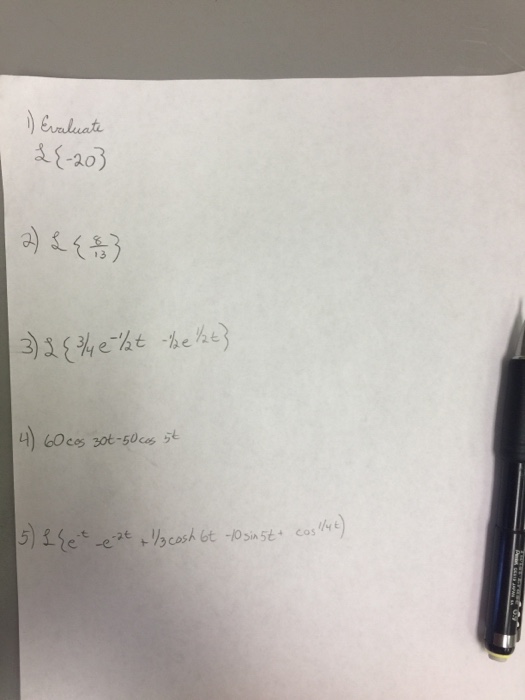 1) Evaluate
ℒ{-20}
2) ℒ{8/13}
3) ℒ{3/4 e^-1/2t -1/2 e^1/2t}
4) 60 cos 30t - 50 cos 5t
5) ℒ{e^-t - e^-2t + 1/3 cosh 6t - 10 sin 5t + cos 1/4t}